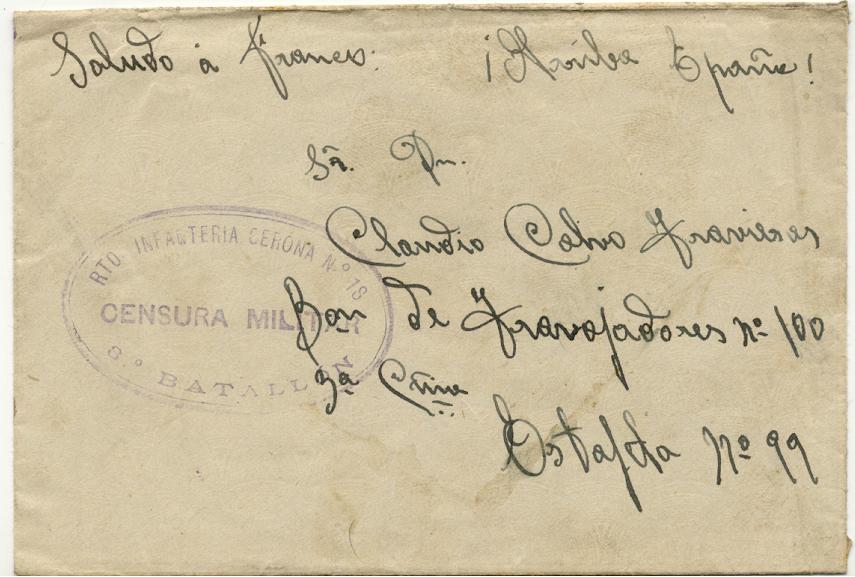 Saludo á Franco. ¡Arriba España!
Sr. Dn.
Claudio Calvo Travieso
Bon de Travajadores nº 100
3ª Cñia
Estafeta nº 99
RTO. INFANTERIA GERONA N.º 18
CENSURA MILITAR
8.º BATALLON